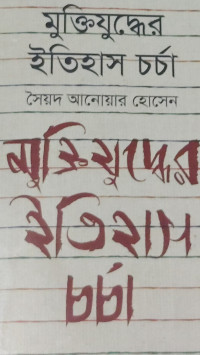 মুক্তিযুদ্ধের
ইতিহাস চর্চা
সৈয়দ আনোয়ার হোসেন
মুক্তিযুদ্ধের
ইতিহাস
চর্চা